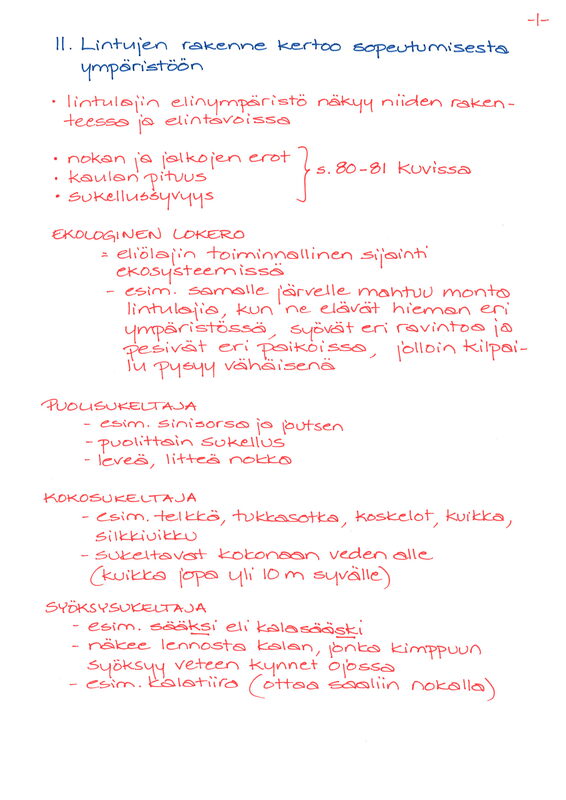 -1-
11. Lintujen rakenne kertoo sopeutumisesta
ympäristöön
• lintulajin elinympäristö näkyy niiden raken-
teessa ja elintavoissa
• nokan ja jalkojen erot
• kaulan pituus
• sukellussyvyys
s. 80-81 kuvissa
EKOLOGINEN LOKERO
= eliölajin toiminnallinen sijainti
ekosysteemissä
- esim. samalle järvelle mahtuu monta
lintulajia, kun ne elävät hieman eri
ympäristössä, syövät eri ravintoa ja
pesivät eri paikoissa, jolloin kilpai-
lu pysyy vähäisenä
PUOLISUKELTAJA
- esim. sinisorsa ja joutsen
- puolittain sukellus
- leveä, litteä nokka
KOKOSUKELTAJA
- esim. telkkä, tukkasotka, koskelot, kuikka,
silkkiuikku
- sukeltavat kokonaan veden alle
(kuikka jopa yli 10 m syvälle)
SYÖKSYSUKELTAJA
- esim. sääksi eli kalasääski
- näkee lennosta kalan, jonka kimppuun
syöksyy veteen kynnet ojossa
- esim. kalatiira (ottaa saaliin nokalla)